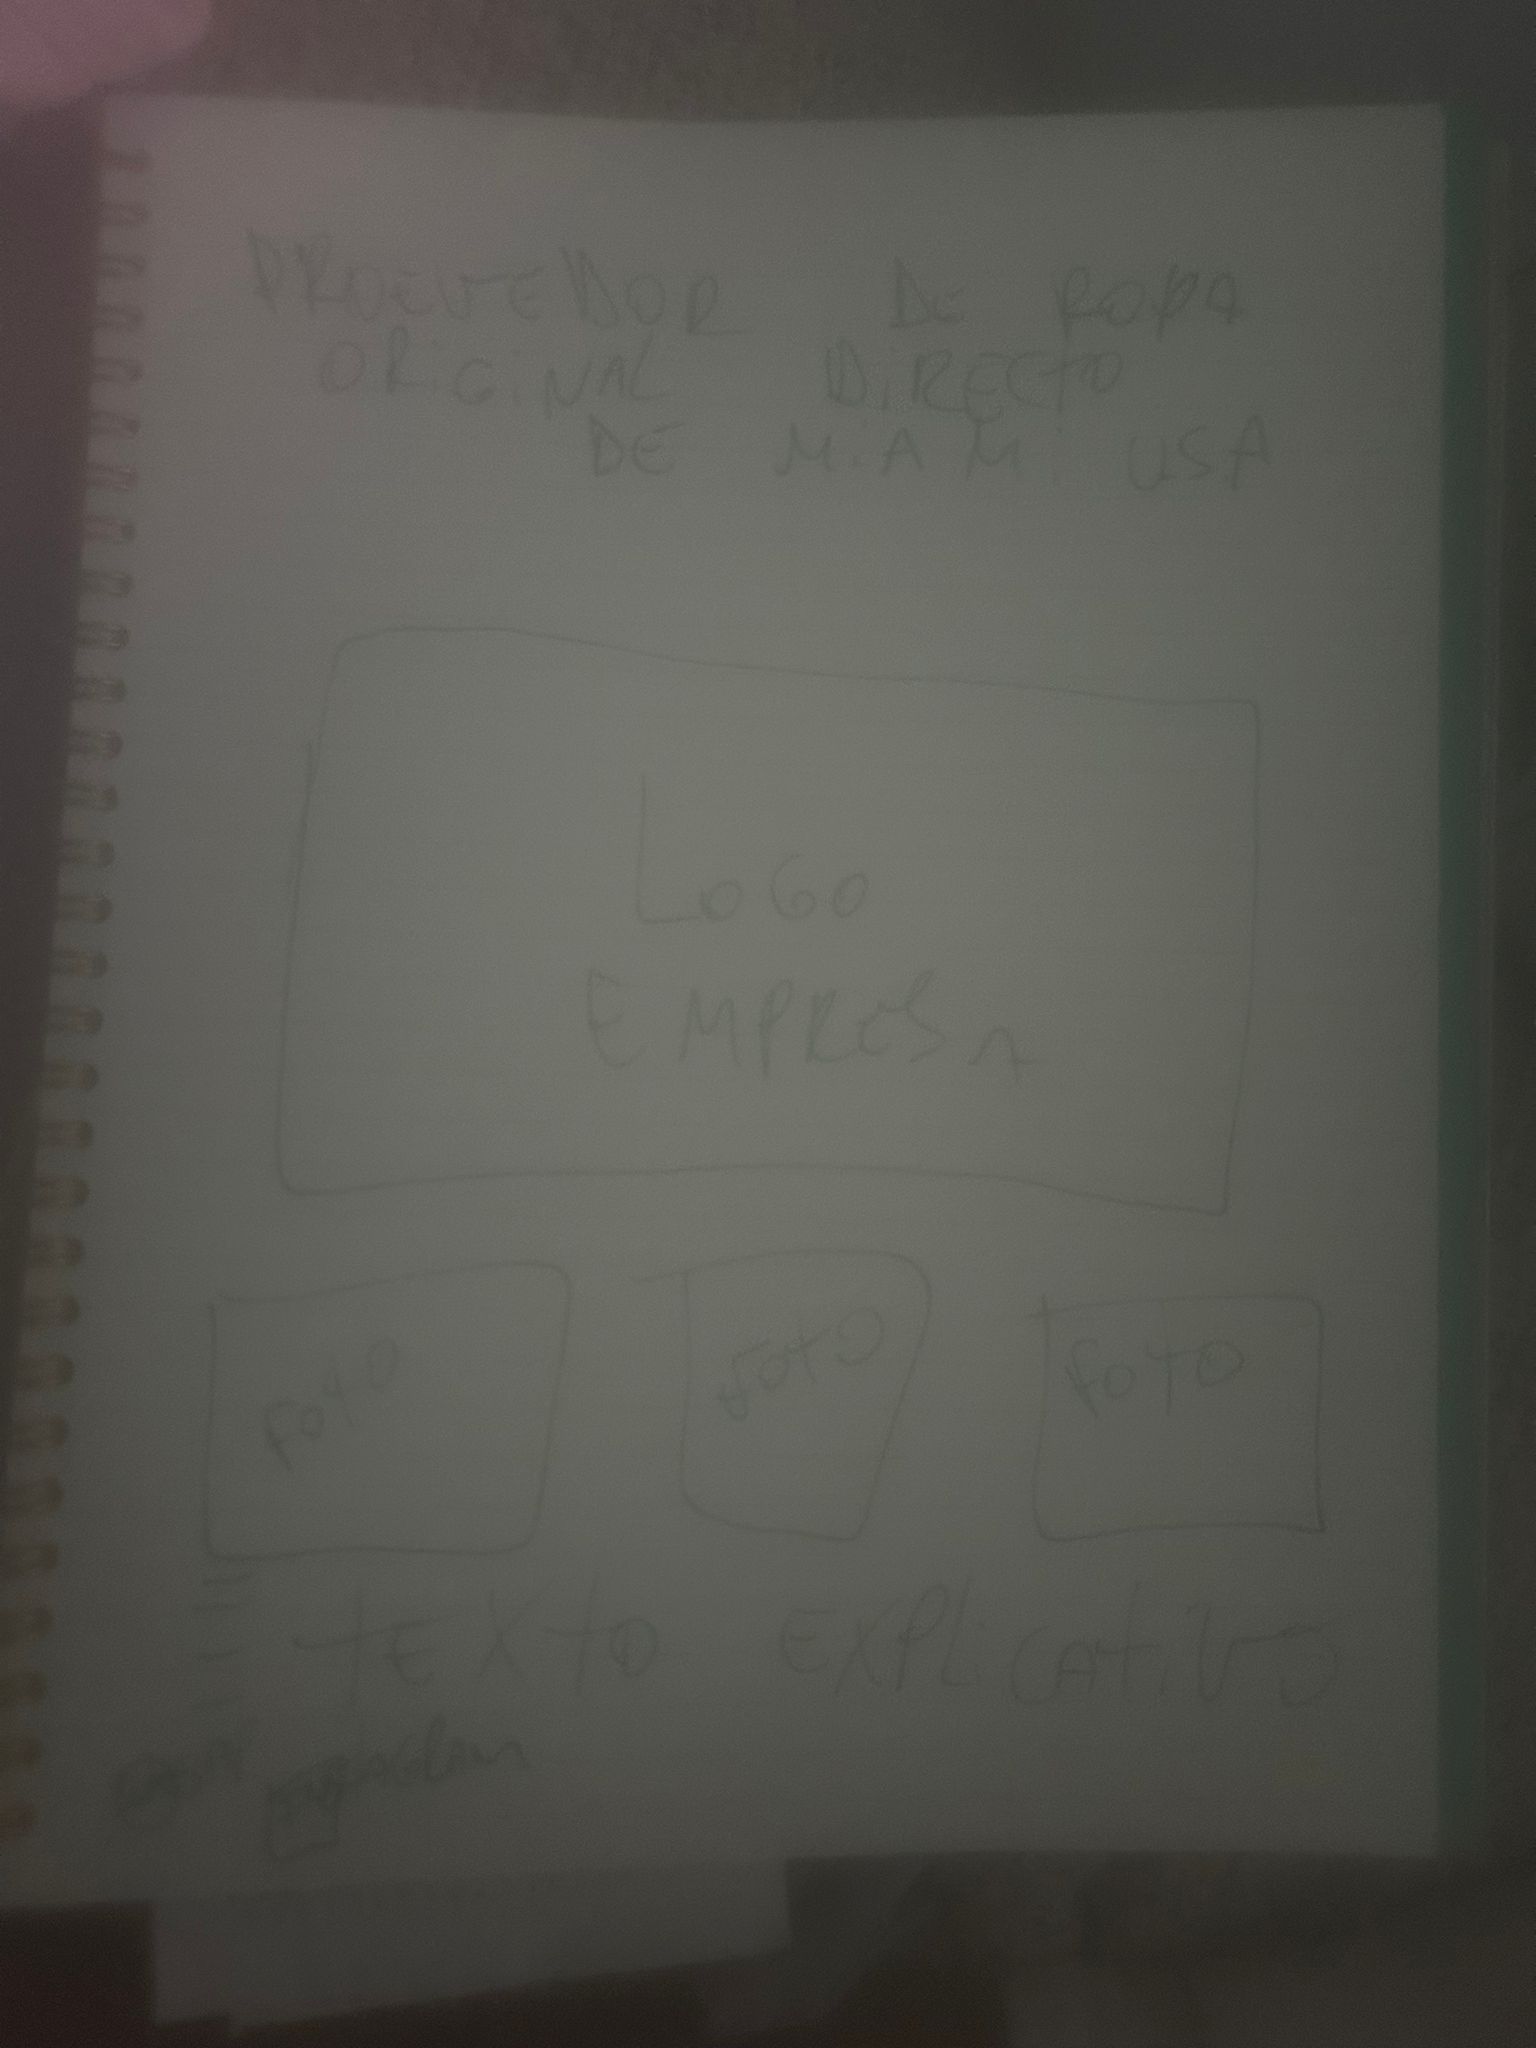 PROEVEDOR DE ROPA
ORIGINAL DIRECTO
DE MiAMi USA
LOGO
EMPRESA
FOTO
FOTO
FOTO
TEXTO EXPLiCATiVO